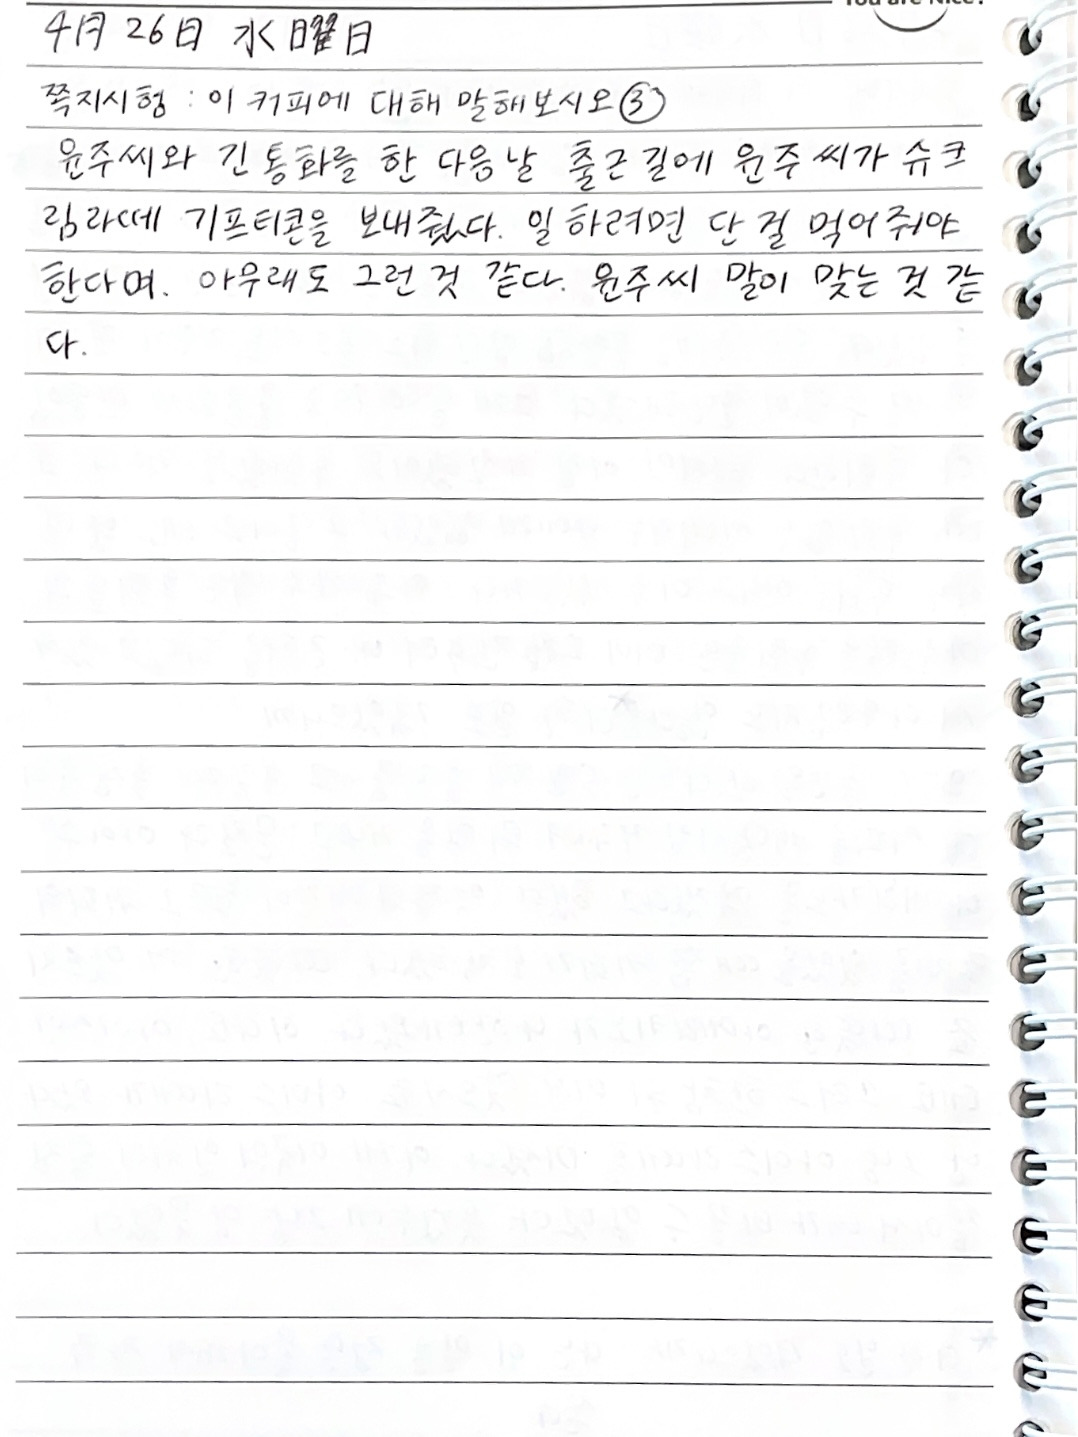 You are Nice!
4月 26日 水曜日
쪽지시험 : 이 커피에 대해 말해보시오 ③
윤주씨와 긴 통화를 한 다음날 출근길에 윤주씨가 슈크
림라떼 기프티콘을 보내줬다. 일 하려면 단 걸 먹어줘야
한다며. 아무래도 그런 것 같다. 윤주씨 말이 맞는 것 같
다.